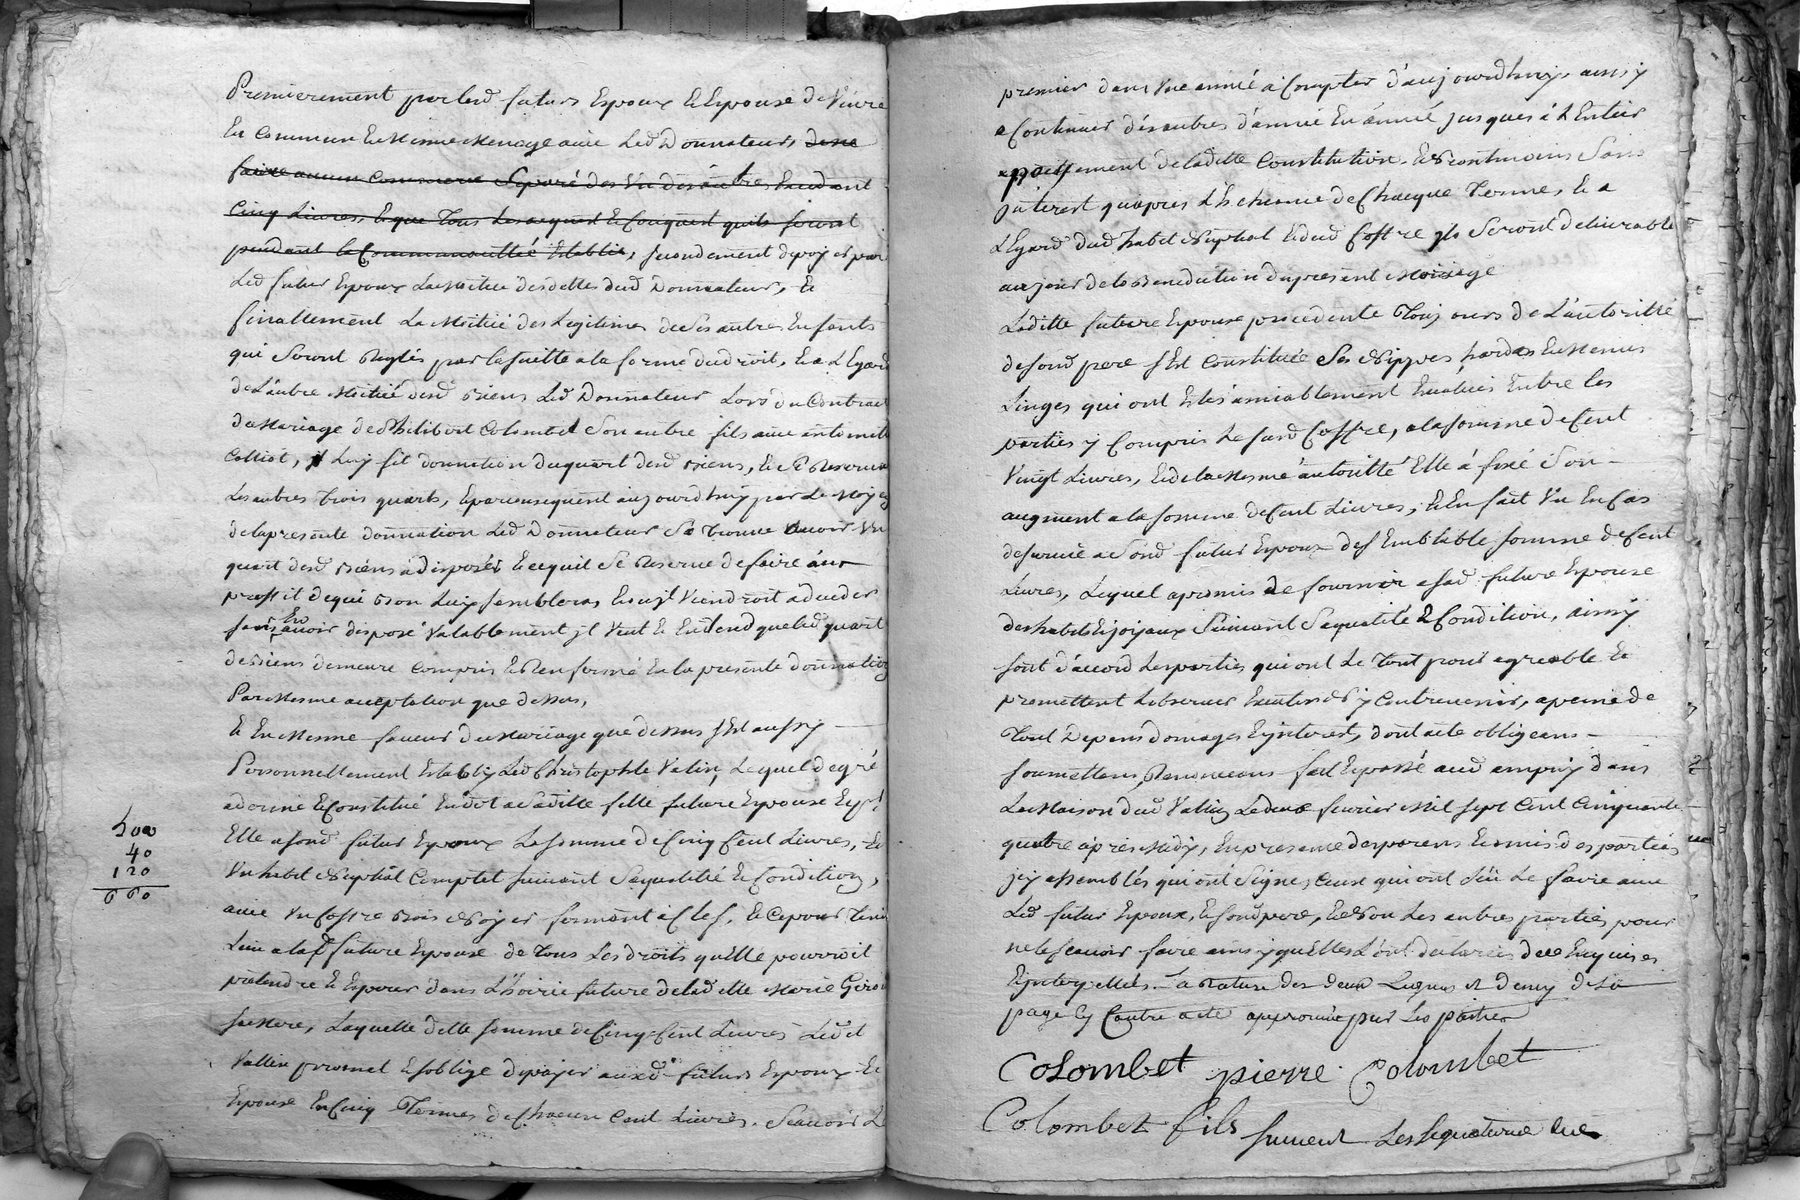 Premierement par lesd futurs Espoux et Espouse de Vivre
En commun En Mesme Menage avec Led Donnateurs de ne
faire aucun commerce Separé des Un des autres Excedant
Cinq Livres, Et que Tous Les acquest et Conquest quils feront
pendant la Communoutté Establie, secondement de payer par
Led futur Espoux La Moitié des dettes dud Donnateur, Et
finallement La Moitié des Legitimes de Ses autres Enfants
qui Seront Reglés par la suitte a la forme du droit, Et a L'Egard
de L'autre Moitié desd Biens Led Donnateur Lors du Contract
de Mariage de Philibert Colombet Son autre fils avec
Colliot, il Luy fit donnation du quart desd Biens, Et Se Reserva
Les autres trois quarts, Et par consequent aujourd'huy par Le Moyen
de la presente donnation Led Donnateur Se trouve avoir Un
quart desd Biens a disposer Et ce quil Se Reserve de faire au
proffit de qui bon Luy semblera, Et sil Viendroit a deceder
sans En avoir disposé Valablement il Veut Et Entend que led quart
de Biens demeure compris Et Renfermé En la presente donnation
Par Mesme acceptation que dessus,
Et En Mesme faveur du Mariage que dessus s'Est aussy
Personnellement Estably Led Christophle Valin, Lequel de gré
a donné Et Constitué En dot a Laditte fille future Espouse Et pr
Elle a sond futur Espoux La somme de Cinq Cent Livres, Et
500
40
120
660
Un habit Nuptial Complet suivant Sa qualité Et Condition,
avec Un Coffre Bois Noyer fermant a Clef, Et ce pour Tenir
Lieu a lad future Espouse de Tous Les droits qu'Elle pourroit
pretendre Et Esperer dans L'hoirie future de laditte Marie
sa Mere, Laquelle ditte somme de Cinq Cent Livres Ledit
Vallin promet Et s'oblige de payer auxd futurs Espoux Et
Espouse En Cinq Termes de Chacun Cent Livres. Scavoir Le
premier dans Une année a Compter d'aujourdhuy, ainsy
a Continuer des autres d'année En année jusques a L'Entier
payement de laditte Constitution. Et Neantmoins Sans
jnterest quapres L'Echeance de Chacque Terme, Et a
L'Egard dud habit Nuptial Et dud Coffre jls Seront delivrable
au jour de la Benediction du present Mariage
Laditte future Espouse procedente Toujours de L'autorité
de sond pere s'Est Constituée Ses Nippes hardes Et Menus
Linges qui ont Estés amiablement Evalués Entre les
parties y Compris Le susd Coffre, a la somme de Cent
Vingt Livres, Et de la Mesme autorité Elle a fixé Son
augment a la somme de Cent Livres, Et En fait Un En Cas
de survie a Sond futur Espoux de semblable somme de Cent
Livres, Lequel a promis de fournir a sad future Espouse
des habits Et joyaux Suivant Sa qualité & Condition, ainsy
sont d'accord Les parties qui ont Le tout pour agreable Et
promettent L'observer Exactement N'y Contrevenir, a peine de
Tout Depens domages Et jnterest, dont acte obligeans
soumettans, Renonceans fait Et passé aud ampuy dans
La Maison dud Vallin Le deux fevrier Mil sept Cent Cinquante
quatre après Midy, En presence des parens Et amis des parties
jcy assemblés qui ont Signe, Ceux qui ont Sceu Le faire avec
Led futur Espoux, Et sond pere, Et Non Les autres parties, pour
ne le scavoir faire ainsy qu'Elles L'ont declarées de ce Enquises
Et jnterpellées. La Rature des deux Lignes et demy de la
page Cy Contre a été approuvée par les parties
Colombet pierre Colombet
Colombet fils suivent Les signatures